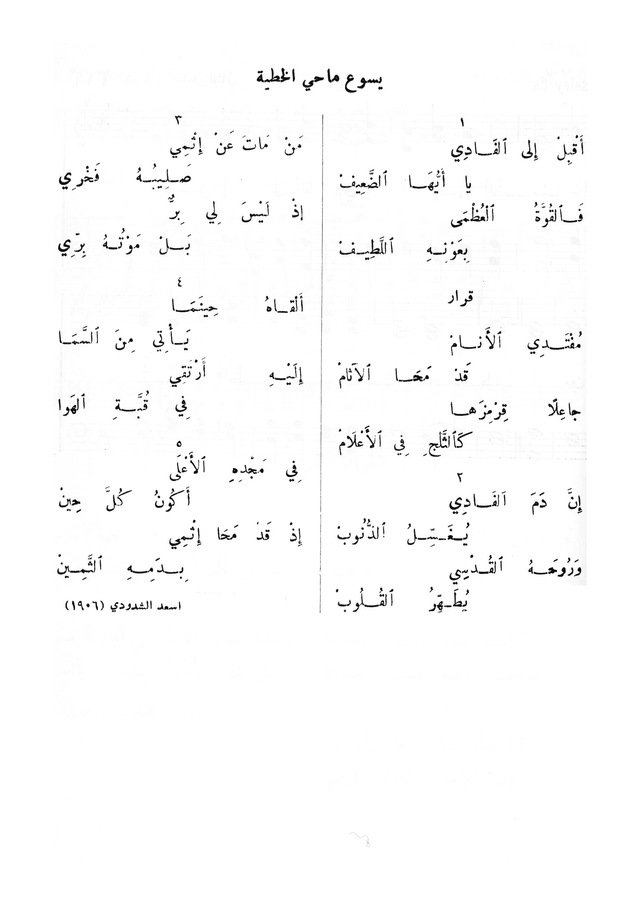 يسوع ماحي الخطية
١
أَقْبِلْ إِلى ٱلفَـادِي
يا أَيُّهَـا الضَّعِيفْ
فَـالقُوَّةُ ٱلْعُظْمَى
بِعَوْنِـهِ اللَّطِيـفْ
قرار
مُفْتَـدِي ٱلأَنـامْ
قَدْ مَحَـا الآثامْ
جاعِلًا قِرْمِزَهـا
كَٱلثَّلْجِ فِي ٱلأَعْلَامْ
٢
إِنَّ دَمَ ٱلفَـادِي
يُغَسِّـلُ الذُّنُوبْ
وَرُوحَـهُ القُدْسِي
يُطَهِّرُ القُـلُوبْ
٣
مَنْ مَاتَ عَنْ إِثْمِي
صَـلِيبُـهُ فَخْرِي
إِذْ لَيْسَ لِي بِرٌّ
بَـلْ مَوْتُـهُ بِرِّي
٤
أَلقـاهُ حِينَمَـا
يَـأْتِي مِنَ ٱلسَّمَا
إِلَيْـهِ أَرْتَقِي
فِي قُبَّـةِ ٱلهَوا
٥
فِي مَجْدِهِ ٱلأَعْلَى
أَكُونُ كُلَّ حِينْ
إِذْ قَدْ مَحَا إِثْمِي
بِـدَمِـهِ ٱلثَّمِـينْ
اسعد الشدودي (١٩٠٦)